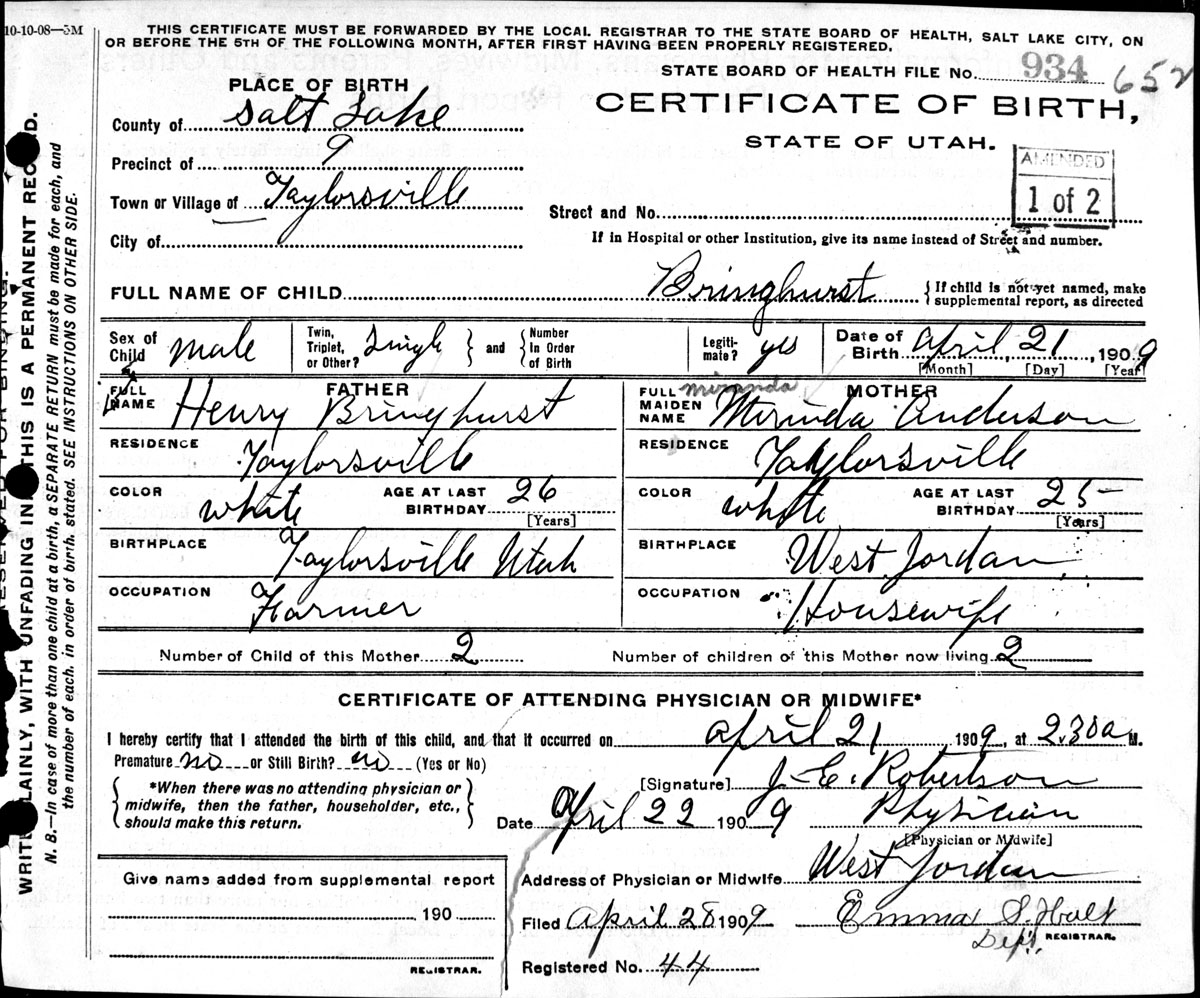 10-10-08—5M
THIS CERTIFICATE MUST BE FORWARDED BY THE LOCAL REGISTRAR TO THE STATE BOARD OF HEALTH, SALT LAKE CITY, ON
OR BEFORE THE 5TH OF THE FOLLOWING MONTH, AFTER FIRST HAVING BEEN PROPERLY REGISTERED.
STATE BOARD OF HEALTH FILE No. 934 652
PLACE OF BIRTH
CERTIFICATE OF BIRTH,
STATE OF UTAH.
County of Salt Lake
Precinct of 9
Town or Village of Taylorsville
City of
AMENDED
1 of 2
Street and No.
If in Hospital or other Institution, give its name instead of Street and number.
FULL NAME OF CHILD Bringhurst { If child is not yet named, make
supplemental report, as directed
Sex of Child male Twin, Triplet, or Other? Single } and { Number In Order of Birth Legiti-mate? yes Date of Birth April 21, 1909
[Month] [Day] [Year]
FATHER
FULL NAME Henry Bringhurst
RESIDENCE Taylorsville
COLOR white AGE AT LAST BIRTHDAY 26
[Years]
BIRTHPLACE Taylorsville Utah
OCCUPATION Farmer
MOTHER
miranda
FULL MAIDEN NAME Mirinda Anderson
RESIDENCE Taylorsville
COLOR white AGE AT LAST BIRTHDAY 25
[Years]
BIRTHPLACE West Jordan
OCCUPATION Housewife
Number of Child of this Mother 2 Number of children of this Mother now living 2
CERTIFICATE OF ATTENDING PHYSICIAN OR MIDWIFE*
I hereby certify that I attended the birth of this child, and that it occurred on April 21, 1909, at 2.30 a M.
Premature no or Still Birth? no (Yes or No)
{ *When there was no attending physician or
midwife, then the father, householder, etc.,
should make this return. }
[Signature] J. E. Robertson
Date April 22 1909 Physician
[Physician or Midwife]
Give name added from supplemental report
190
REGISTRAR.
Address of Physician or Midwife West Jordan
Filed April 28 1909 Emma S. Holt
Dept. REGISTRAR.
Registered No. 44
RESERVED FOR BINDING.
WRITE PLAINLY, WITH UNFADING INK THIS IS A PERMANENT RECORD.
N. B.—In case of more than one child at a birth, a SEPARATE RETURN must be made for each, and
the number of each, in order of birth, stated. SEE INSTRUCTIONS ON OTHER SIDE.